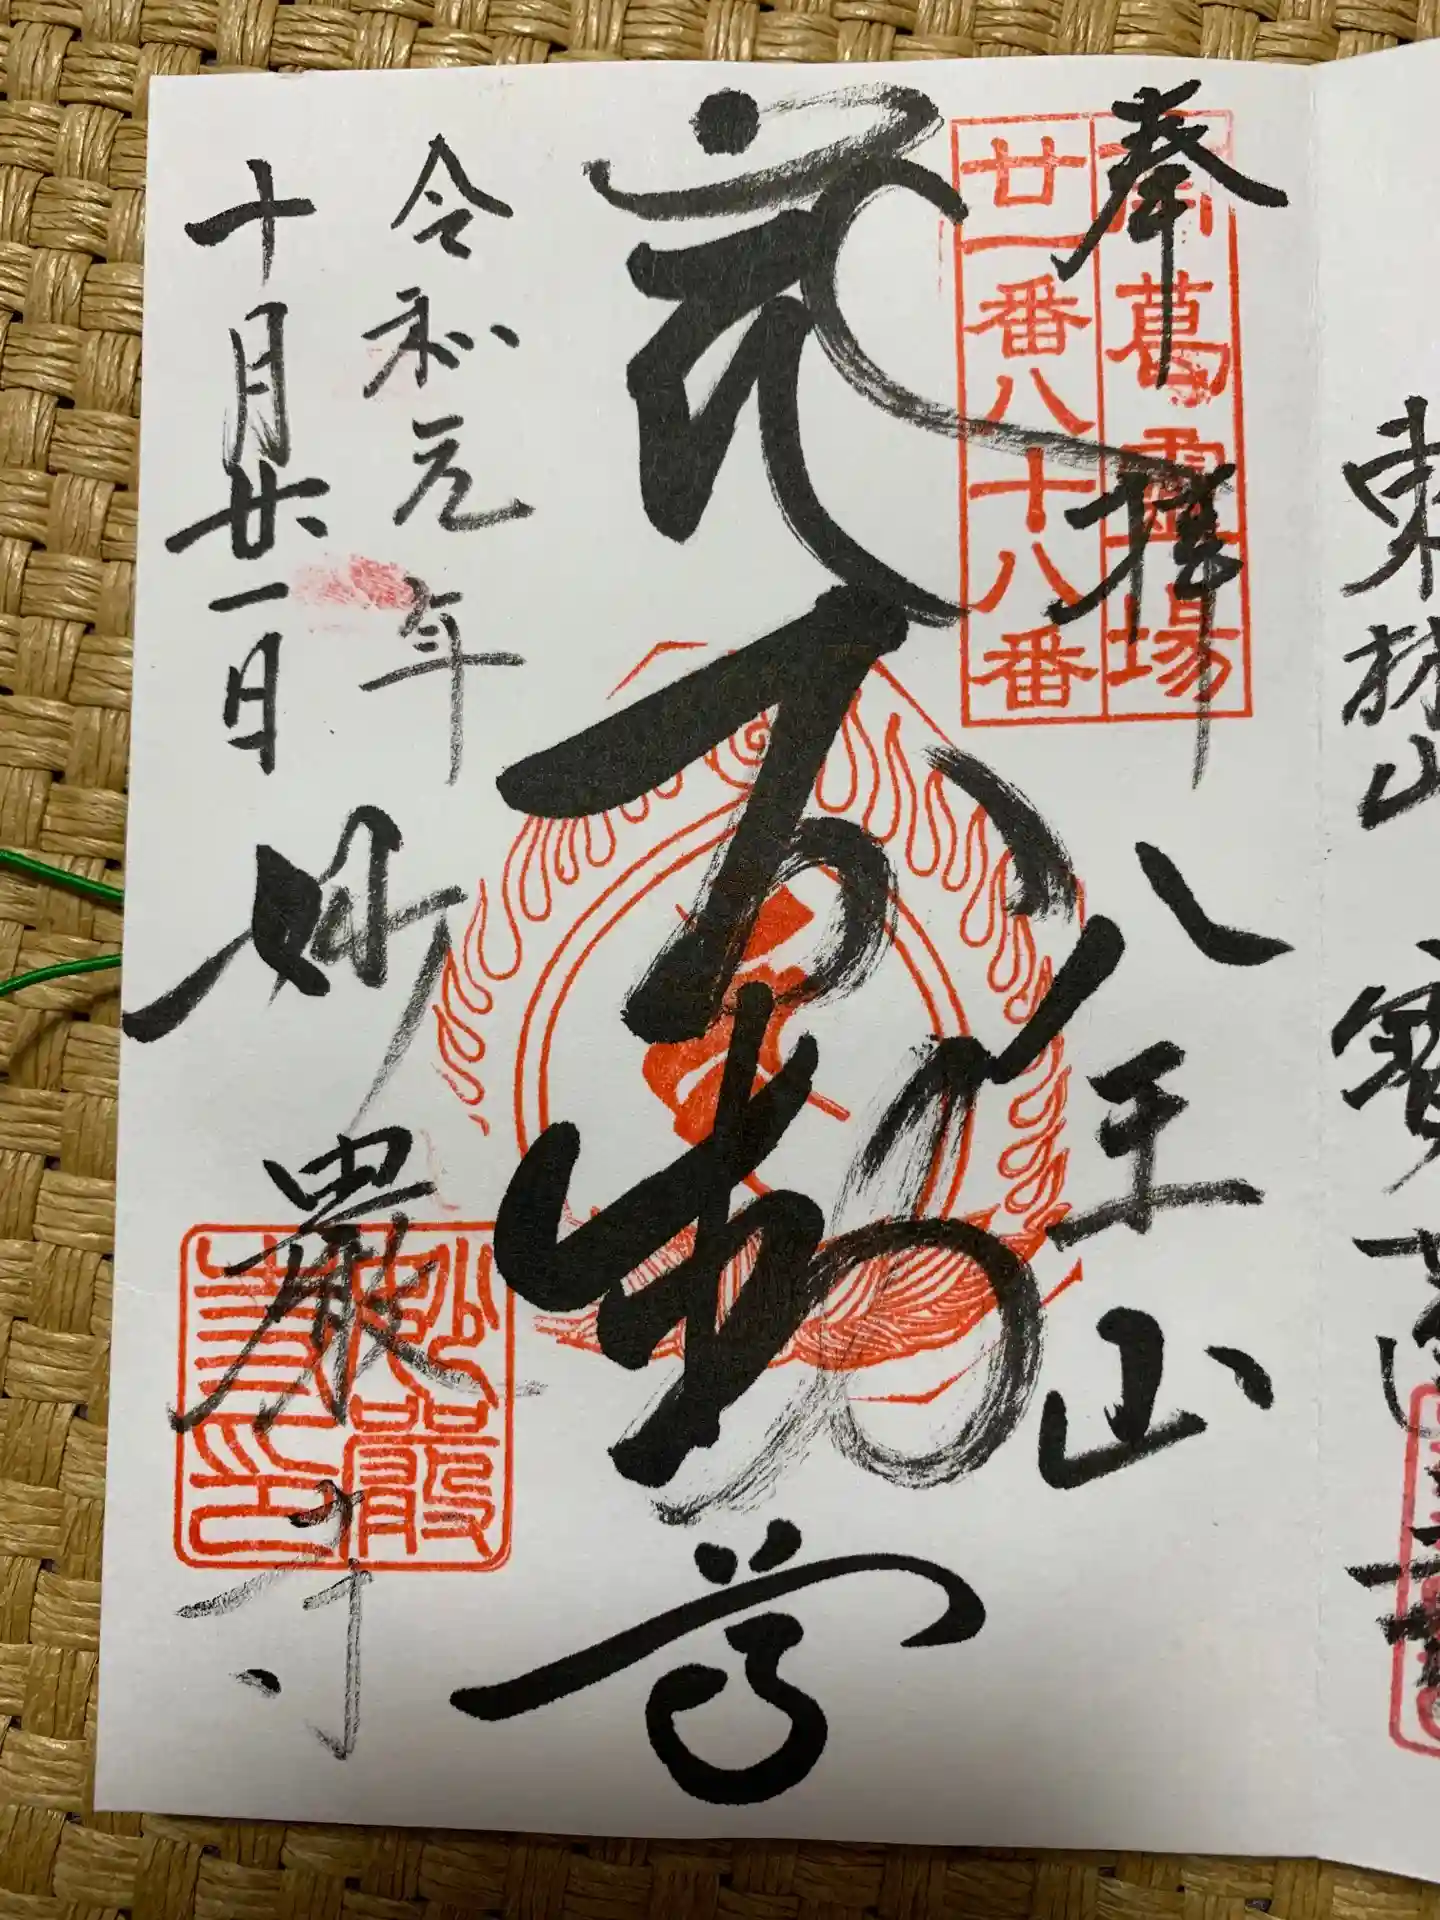 東林山
奉拝
八王山
南葛靈場
廿一番八十八番
不動尊
令和元年
十月廿一日
妙嚴寺
妙嚴
寺印